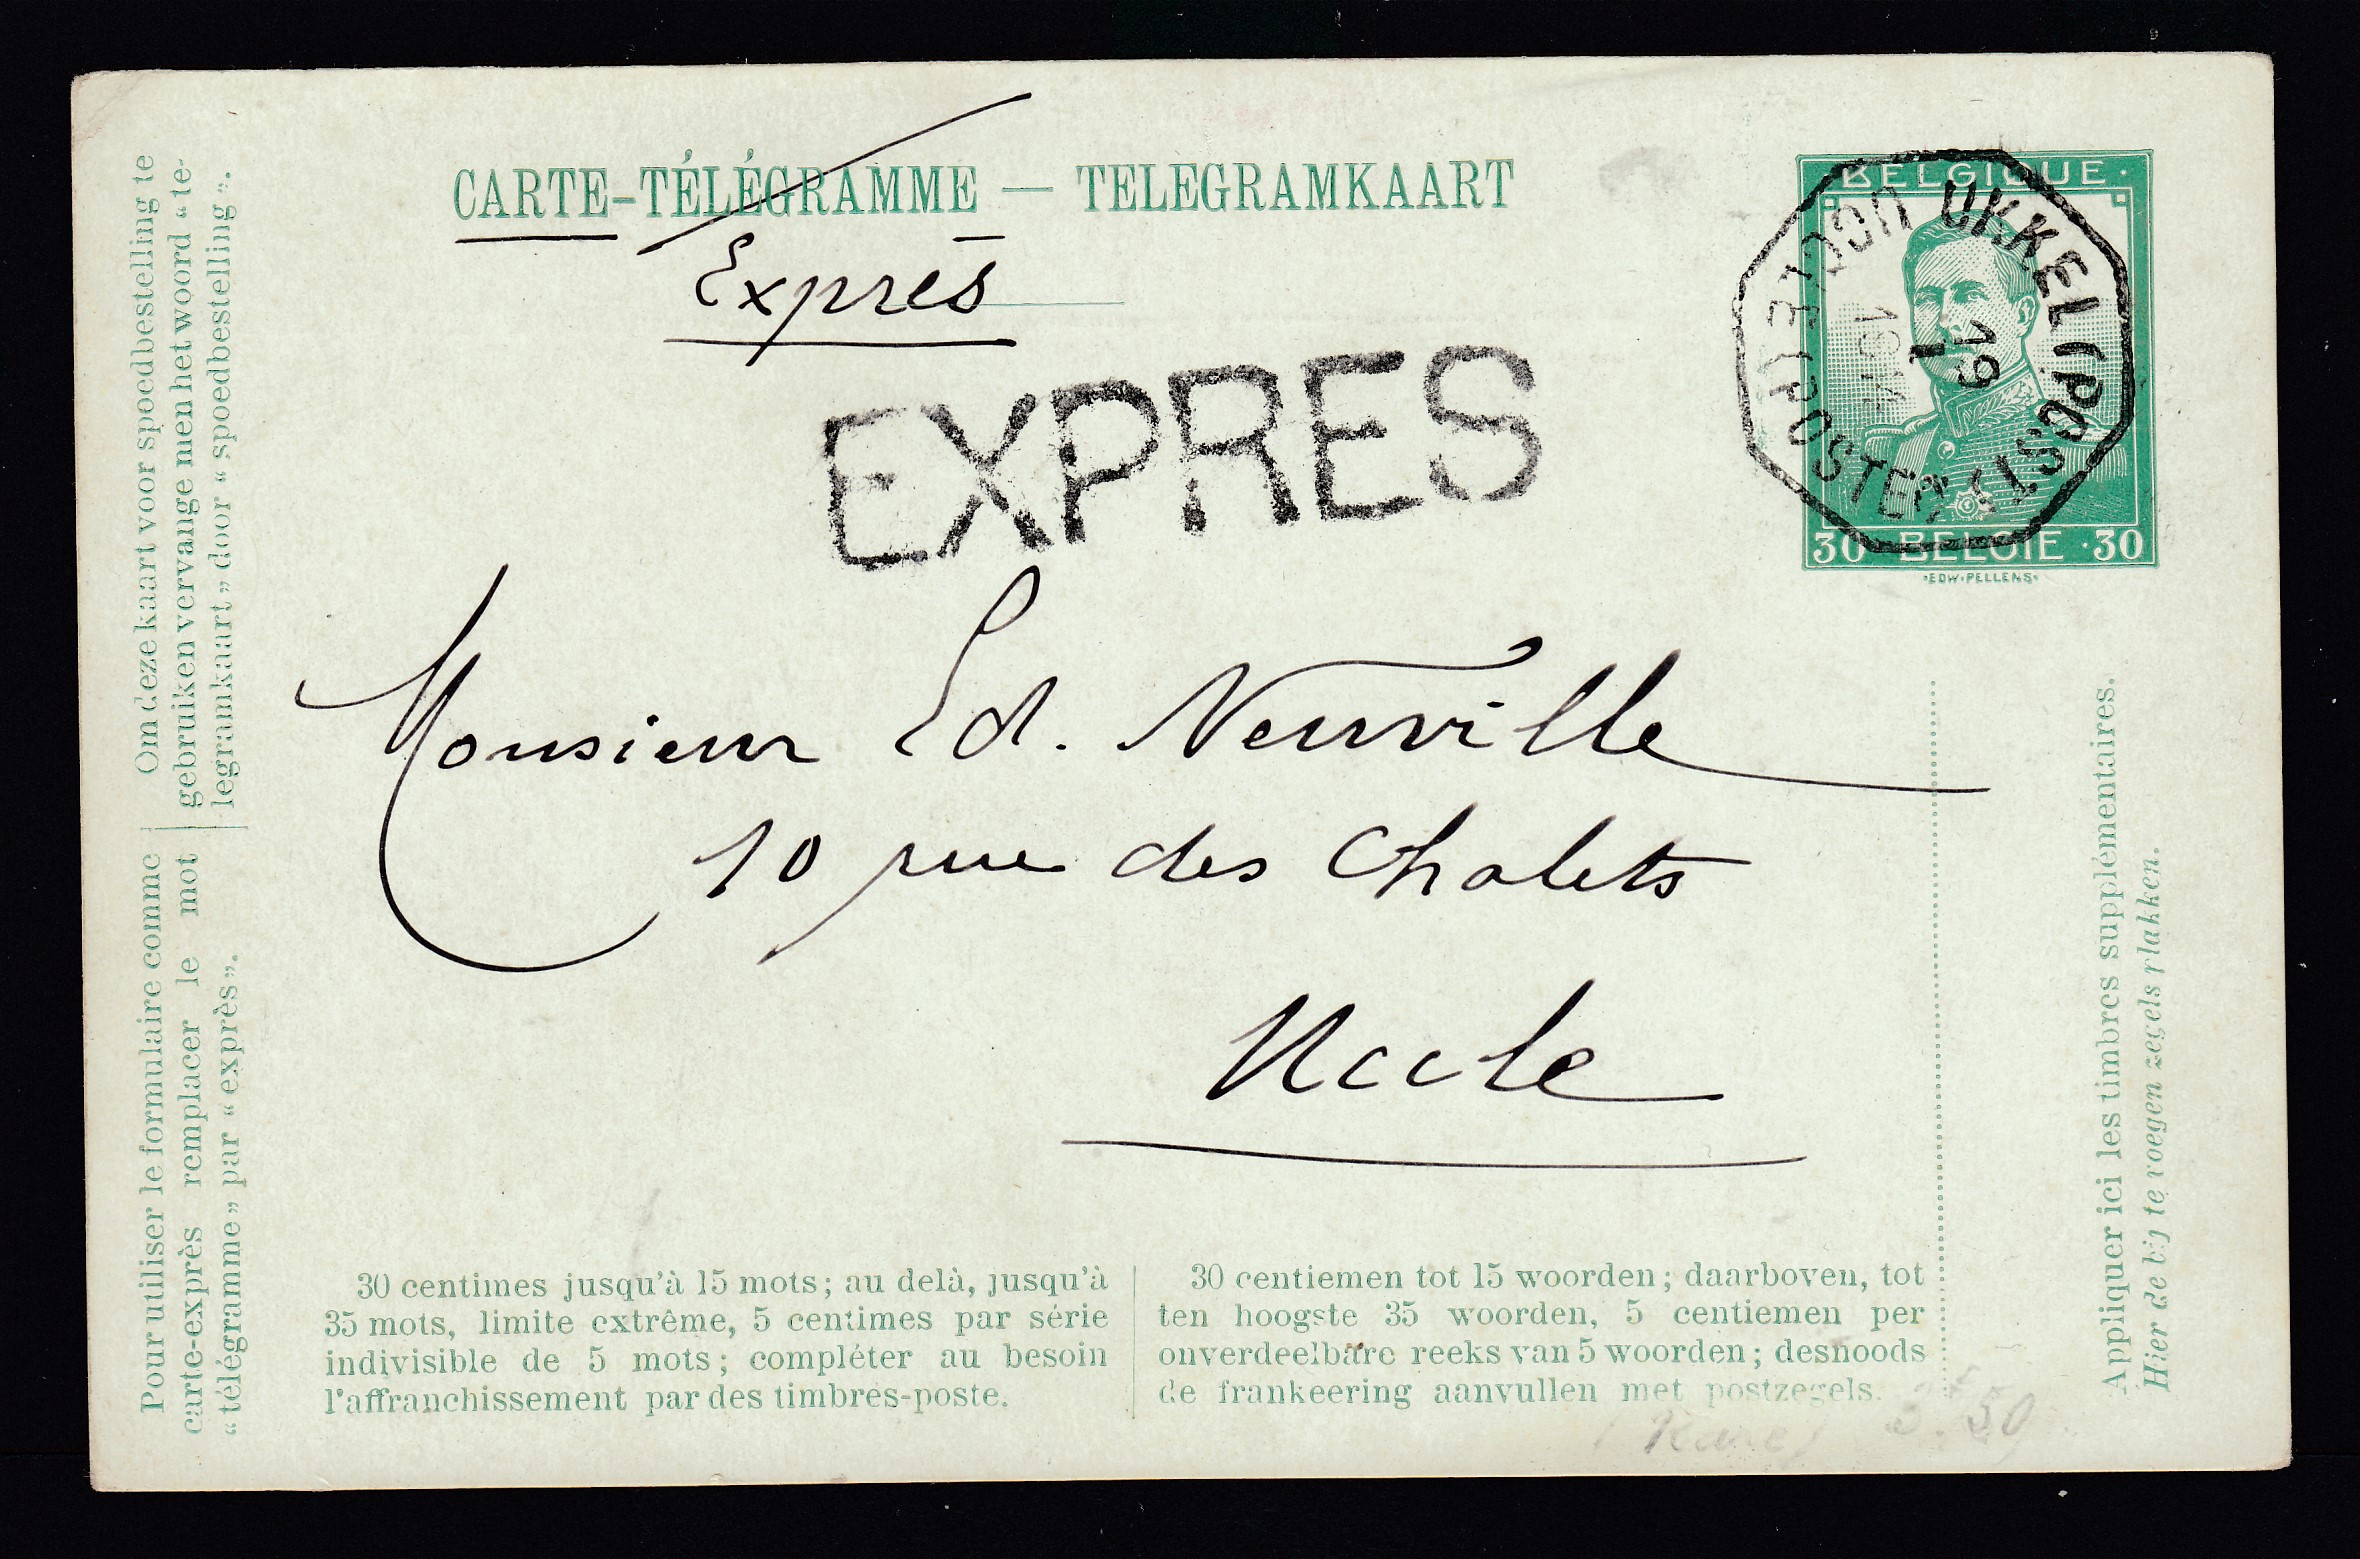 CARTE-TÉLÉGRAMME — TELEGRAMKAART
Exprès
EXPRES
BELGIQUE
30 BELGIE 30
EDW·PELLENS
UCCLE (POSTES) UKKEL (POST
19
I
1914
Monsieur Ed. Neuville
10 rue des Chalets
Uccle
Om deze kaart voor spoedbestelling te
gebruiken vervange men het woord "te-
legramkaart" door "spoedbestelling".
Pour utiliser le formulaire comme
carte-exprès remplacer le mot
"télégramme" par "exprès".
30 centimes jusqu'à 15 mots; au delà, jusqu'à
35 mots, limite extrême, 5 centimes par série
indivisible de 5 mots; compléter au besoin
l'affranchissement par des timbres-poste.
30 centiemen tot 15 woorden; daarboven, tot
ten hoogste 35 woorden, 5 centiemen per
onverdeelbare reeks van 5 woorden; desnoods
de frankeering aanvullen met postzegels.
Appliquer ici les timbres supplémentaires.
Hier de bij te voegen zegels plakken.